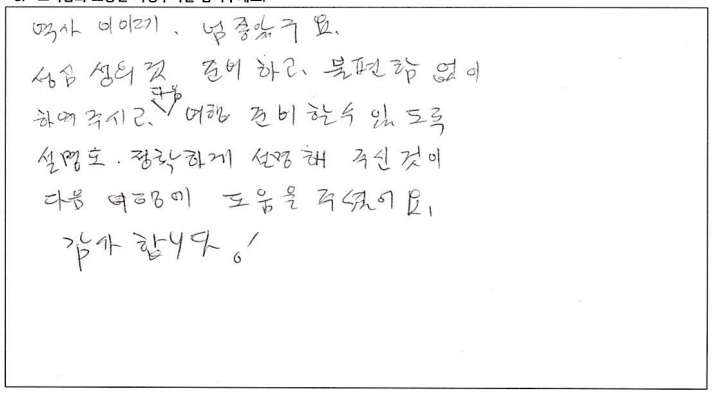 역사 이야기. 넘 좋았구요.
성심 성의 것 준비 하고, 불편함 없이
하여 주시고, 다음 여행 준비 할수 있도록
설명도. 정확하게 설명해 주신 것이
다음 여행에 도움을 주셨어요,
감사 합니다!